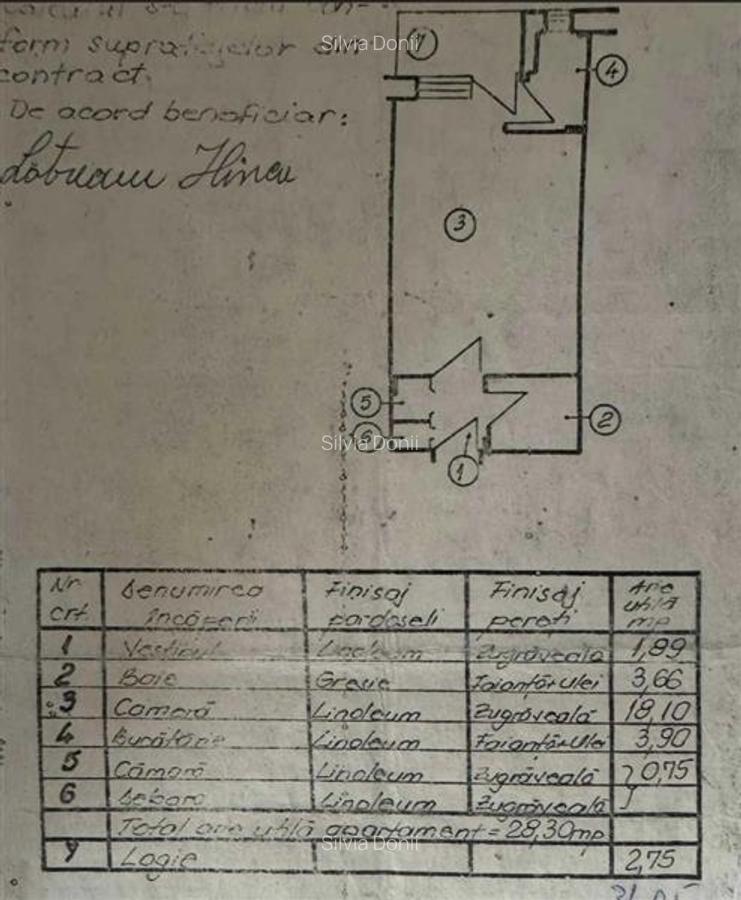 form suprafețelor din
contract.
De acord beneficiar:
Silvia Donii
7
4
3
5
2
6
Silvia Donii
1
Nr. crt. Denumirea încăperii Finisaj pardoseli Finisaj pereți Arie utilă mp
1 Vestibul Linoleum Zugrăveală 1,89
2 Baie Gresie Faianță+ulei 3,66
3 Cameră Linoleum Zugrăveală 18,10
4 Bucătărie Linoleum Faianță+ulei 3,90
5 Cămară Linoleum Zugrăveală } 0,75
6 Debara Linoleum Zugrăveală
Total arie utilă apartament = 28,30mp
Silvia Donii
7 Logie 2,75